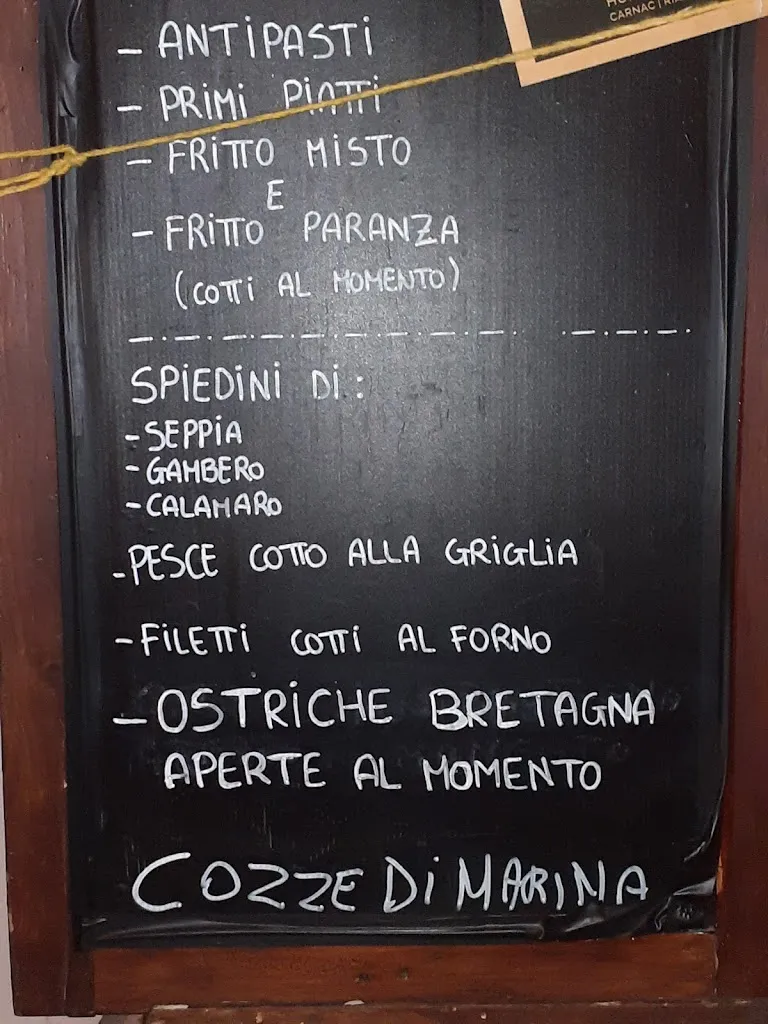 CARNACTRIA
- ANTIPASTI
- PRIMI PIATTI
- FRITTO MISTO
E
- FRITTO PARANZA
(COTTI AL MOMENTO)
SPIEDINI DI:
- SEPPIA
- GAMBERO
- CALAMARO
- PESCE COTTO ALLA GRIGLIA
- FILETTI COTTI AL FORNO
- OSTRICHE BRETAGNA
APERTE AL MOMENTO
COZZE DI MARINA